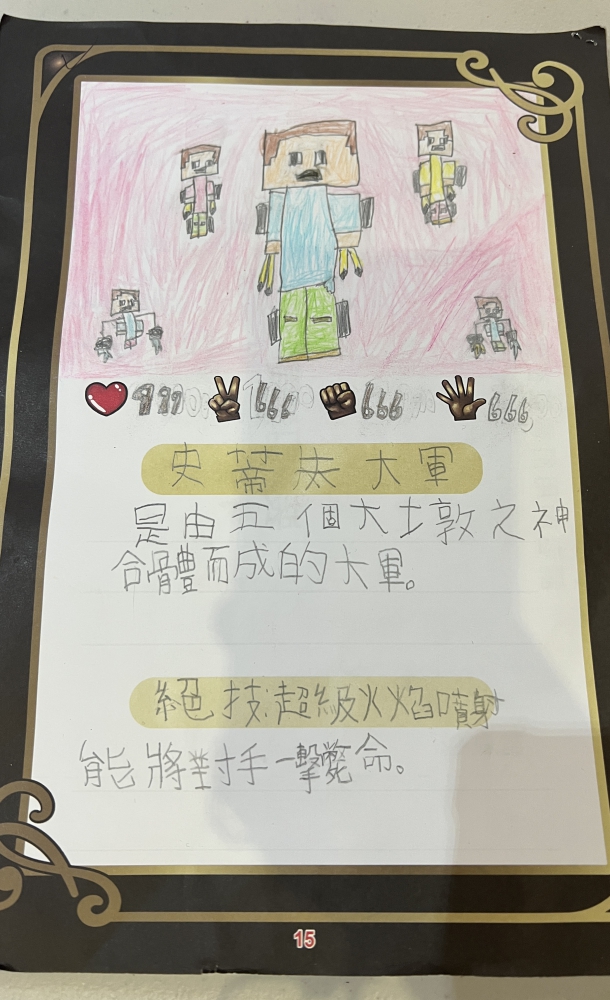 999 666 666 666
史蒂夫大軍
是由五個大土敦之神
合體而成的大軍。
絕技:超級火焰噴射
能將對手一擊斃命。
15